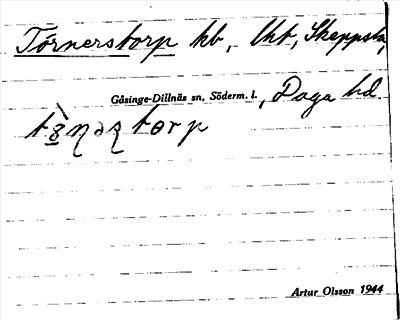 Törnerstorp hb, lht, Skeppsta,
Gåsinge-Dillnäs sn, Söderm. l., Daga hd
Artur Olsson 1944